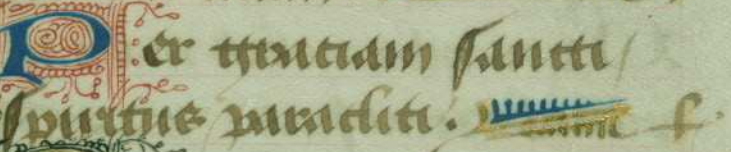 Per gratiam sancti
spiritus paracliti.